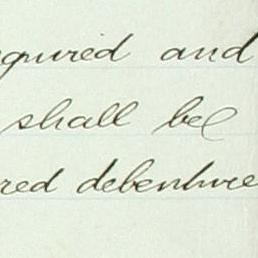 and
shall be
red debenture